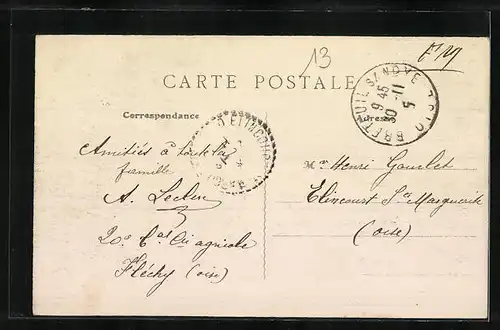 13
CARTE POSTALE
Correspondance
Adresse
BRETUIL S/ NOYE
9 45
30 - 11
OISE
Amitiés à toute la
famille
A. Leclerc
20e
agricole
Fléchy (oise)
Mr Henri Gourlet
Elincourt Ste Marguerite
(oise)